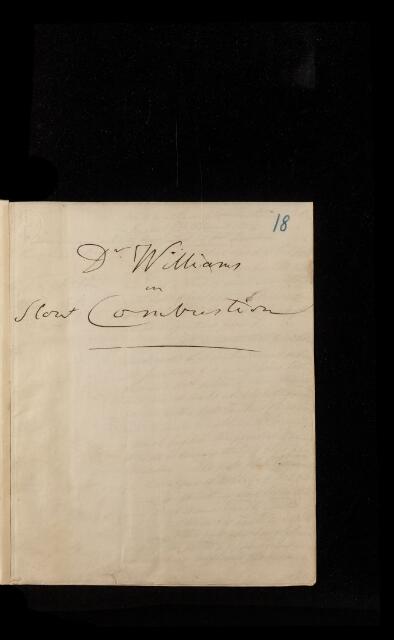 18
Dr Williams
on
Slow Combustion